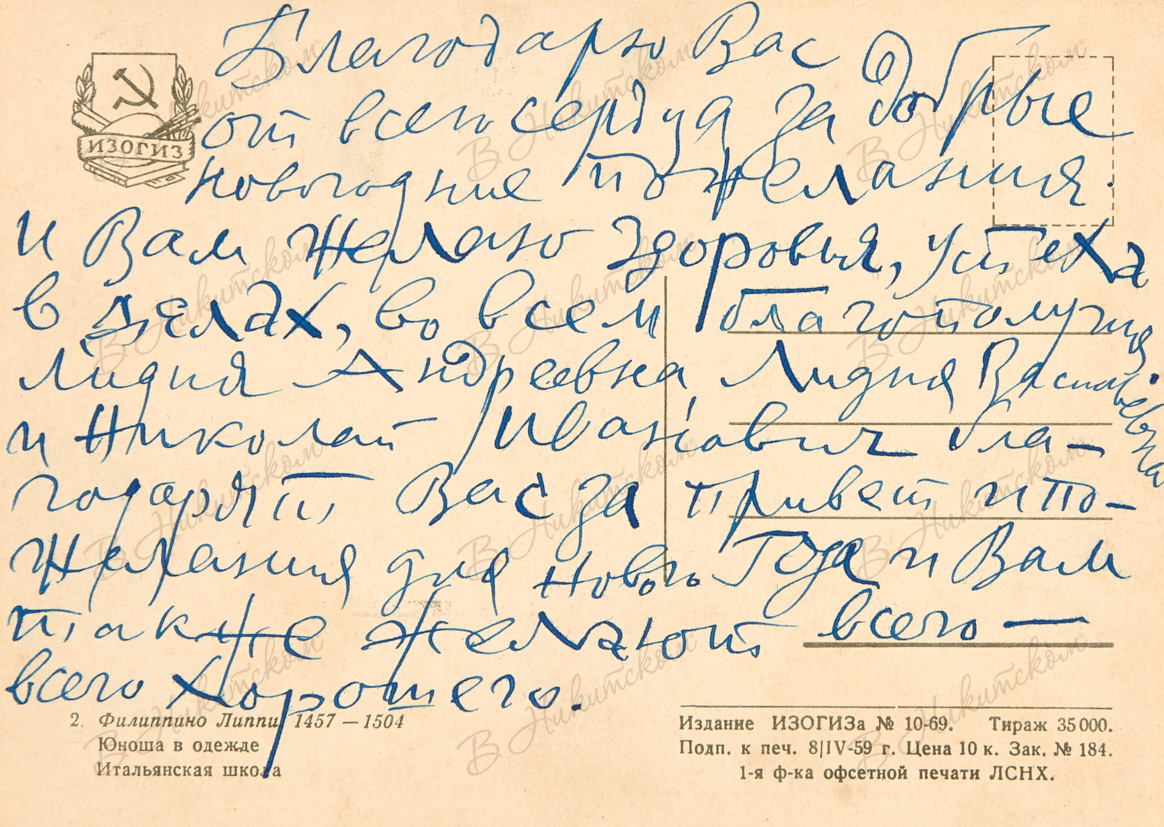 Благодарю Вас
от всего сердца за добрые
новогодние пожелания.
И Вам желаю здоровья, успеха
в делах, во всем благополучия
Лидия Андреевна, Лидия Васильевна
и Николай Иванович бла-
годарят Вас за привет и по-
желания для нового Года и Вам
также желают всего —
всего хорошего.
ИЗОГИЗ
2. Филиппино Липпи, 1457 — 1504
Юноша в одежде
Итальянская школа
Издание ИЗОГИЗа № 10-69. Тираж 35 000.
Подп. к печ. 8|IV-59 г. Цена 10 к. Зак. № 184.
1-я ф-ка офсетной печати ЛСНХ.
В Никитском